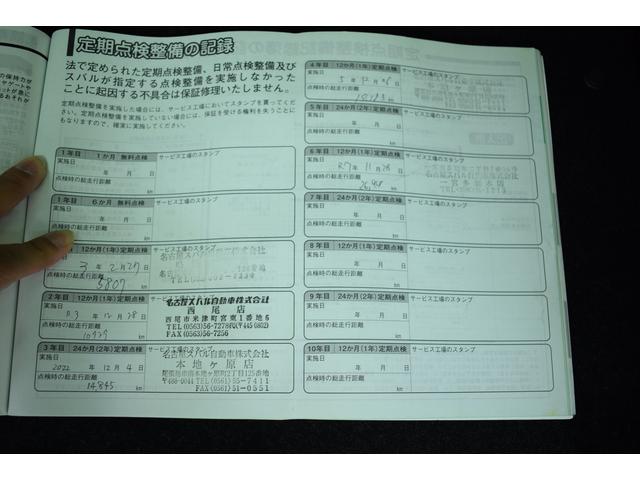 定期点検整備の記録
法で定められた定期点検整備、日常点検整備及び
スバルが指定する点検整備を実施しなかった
ことに起因する不具合は保証修理いたしません。
定期点検整備を実施した場合には、サービス工場においてスタンプを貰ってく
ださい。定期点検整備を実施していない場合には、保証を受ける権利を失うことに
もなりますので、確実に実施してください。
1年目 1か月 無料点検 サービス工場のスタンプ
実施日 年 月 日
点検時の総走行距離 km
1年目 6か月 無料点検 サービス工場のスタンプ
実施日 年 月 日
点検時の総走行距離 km
12か月(1年)定期点検 サービス工場のスタンプ
3年 2月27
点検時の総走行距離
5807 km
2年目 12か月(1年)定期点検
実施日 R3年 12月28日
点検時の総走行距離
km
名古屋スバル自動車株式会社
西尾店
西尾市米津町宮東1番地6
TEL(0563)56-7278 FAX(0563)56-7256
3年目 24か月(2年)定期点検 サービス工場のスタンプ
実施日 2022年 12月4日
点検時の総走行距離
14,845 km
名古屋スバル自動車株式会社
本地ヶ原店
〒488-0044 TEL(0561)55-7411
FAX(0561)51-0551
4年目 12か月(1年)定期点検 サービス工場のスタンプ
実施日 5年 12月
点検時の総走行距離
km
5年目 24か月(2年)定期点検 サービス工場のスタンプ
実施日 年 月 日
点検時の総走行距離 km
6年目 12か月(1年)定期点検 サービス工場のスタンプ
実施日 R7年 11月28日
点検時の総走行距離
km
7年目 24か月(2年)定期点検 サービス工場のスタンプ
実施日 年 月 日
点検時の総走行距離 km
8年目 12か月(1年)定期点検 サービス工場のスタンプ
実施日 年 月 日
点検時の総走行距離 km
9年目 24か月(2年)定期点検 サービス工場のスタンプ
実施日 年 月 日
点検時の総走行距離 km
10年目 12か月(1年)定期点検 サービス工場のスタンプ
実施日 年 月 日
点検時の総走行距離 km